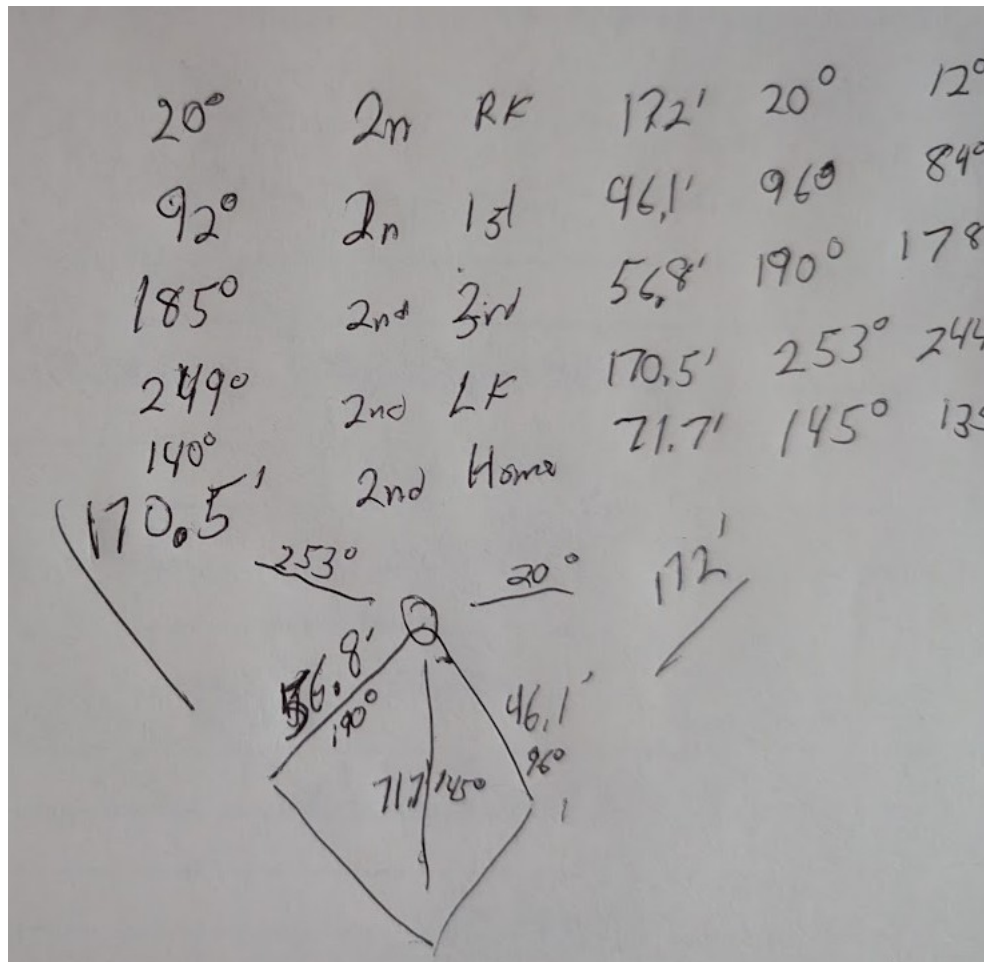 20° 2n RF 172' 20° 12°
92° 2n 1st 46,1' 96° 84°
185° 2nd 3rd 56,8' 190° 178
249° 2nd LF 170.5' 253° 244
140° 2nd Home 71.7' 145° 135
170.5'
253° 20° 172'
56.8' 46.1'
190° 96°
71.7 145°